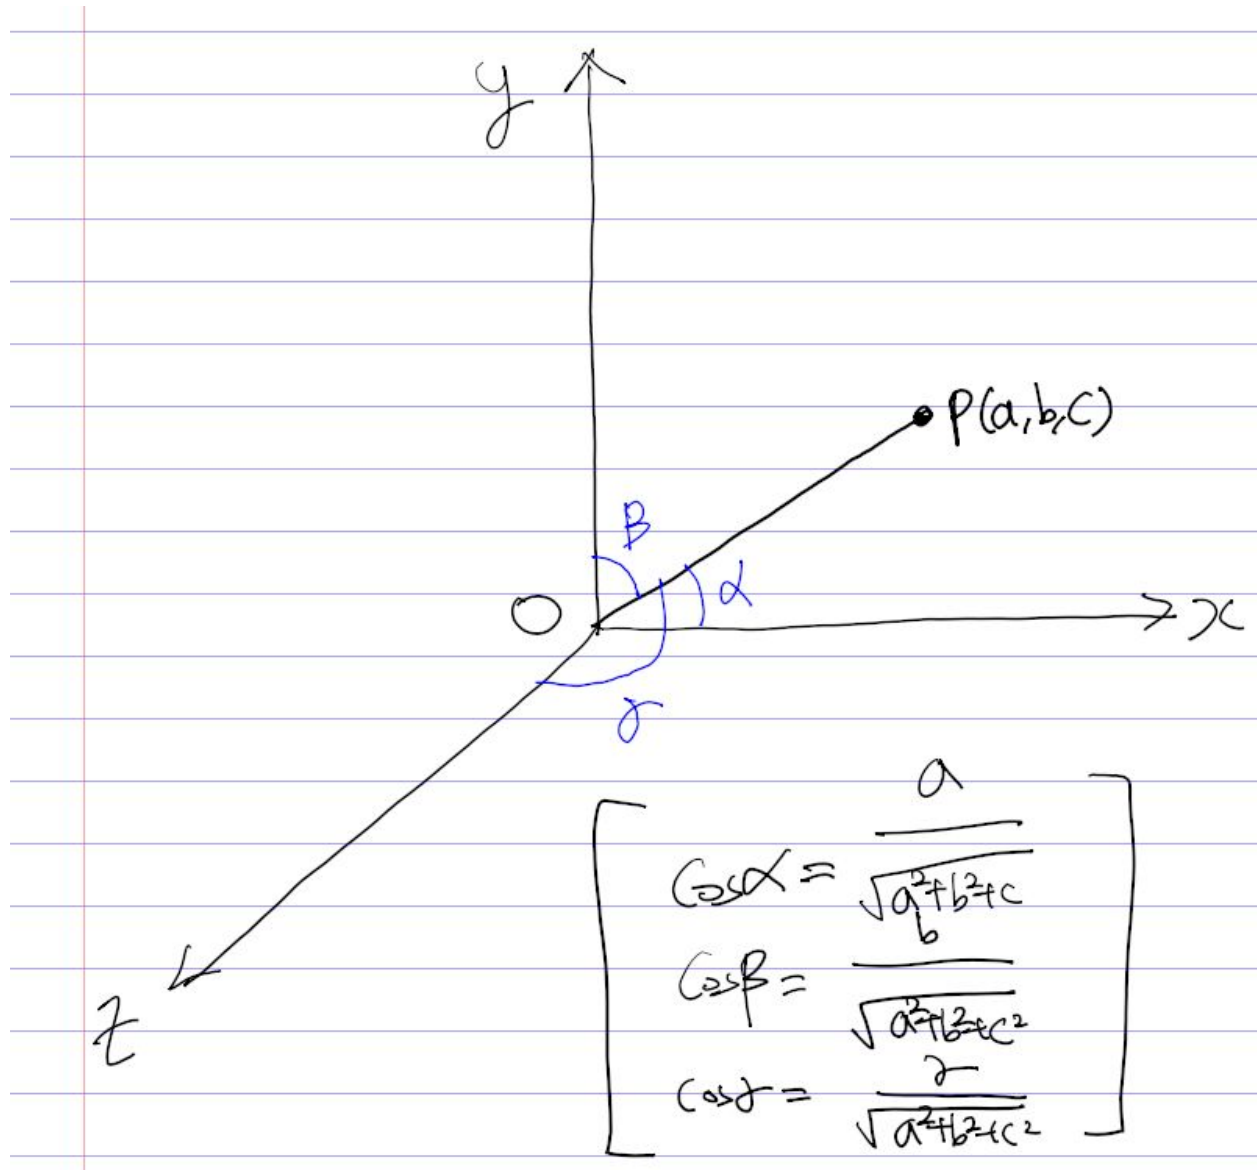 y
P(a,b,c)
β
O
α
x
γ
z
cosα = a/√(a²+b²+c)
cosβ = b/√(a²+b²+c²)
cosγ = γ/√(a²+b²+c²)